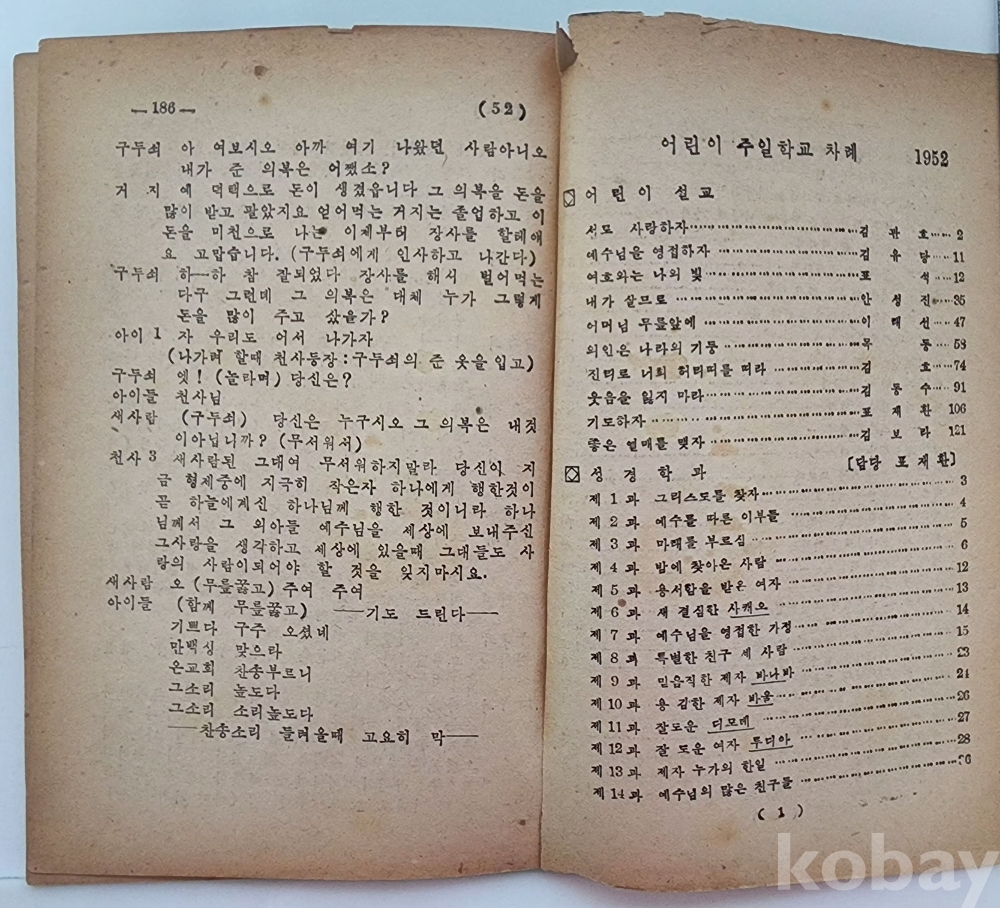 — 186 — (52)
구두쇠 아 여보시오 아까 여기 나왔던 사람아니오
내가 준 의복은 어쨌소?
거 지 예 덕택으로 돈이 생겼읍니다 그 의복을 돈을
많이 받고 팔았지요 얻어먹는 거지는 졸업하고 이
돈을 미천으로 나는 이제부터 장사를 할테애
요 고맙습니다. (구두쇠에게 인사하고 나간다)
구두쇠 하—하 참 잘되었다 장사를 해서 벌어먹는
다구 그런데 그 의복은 대체 누가 그렇게
돈을 많이 주고 샀을가?
아이 1 자 우리도 어서 나가자
(나가려 할때 천사등장 : 구두쇠의 준 옷을 입고)
구두쇠 엣! (놀라며) 당신은?
아이들 천사님
새사람 (구두쇠) 당신은 누구시오 그 의복은 내것
이아닙니까? (무서워서)
천사 3 새사람된 그대여 무서워하지말라 당신이 지
금 형제중에 지극히 작은자 하나에게 행한것이
곧 하늘에게신 하나님께 행한 것이니라 하나
님께서 그 외아들 예수님을 세상에 보내주신
그사랑을 생각하고 세상에 있을때 그대들도 사
랑의 사람이되어야 할 것을 잊지마시요.
새사람 오 (무릎꿇고) 주여 주여
아이들 (함께 무릎꿇고) ——기도 드린다——
기쁘다 구주 오셨네
만백성 맞으라
온교회 찬송부르니
그소리 높도다
그소리 소리높도다
——찬송소리 들려올때 고요히 막——
어린이 주일학교 차례 1952
어린이 설교
서로 사랑하자 김 관 호 2
예수님을 영접하자 김 유 당 11
여호와는 나의 빛 표 석 12
내가 살므로 안 성 진 35
어머님 무릎앞에 이 태 선 47
의인은 나라의 기둥 목 동 58
진리로 너희 허리띠를 띠라 김 호 74
웃음을 잃지 마라 김 동 수 91
기도하자 표 재 환 106
좋은 열매를 맺자 김 보 라 121
성경학과 [담당 표 재 환]
제 1 과 그리스도를 찾자 3
제 2 과 예수를 따른 이부들 4
제 3 과 마태를 부르심 5
제 4 과 밤에 찾아온 사람 6
제 5 과 용서함을 받은 여자 12
제 6 과 새 결심한 사캐오 13
제 7 과 예수님을 영접한 가정 14
제 8 과 특별한 친구 세 사람 15
제 9 과 믿음직한 제자 바나바 23
제 10 과 용 감한 제자 바울 24
제 11 과 잘도운 디모데 26
제 12 과 잘 도운 여자 루디아 27
제 13 과 제자 누가의 한일 28
제 14 과 예수님의 많은 친구들 36
( 1 )
kobay